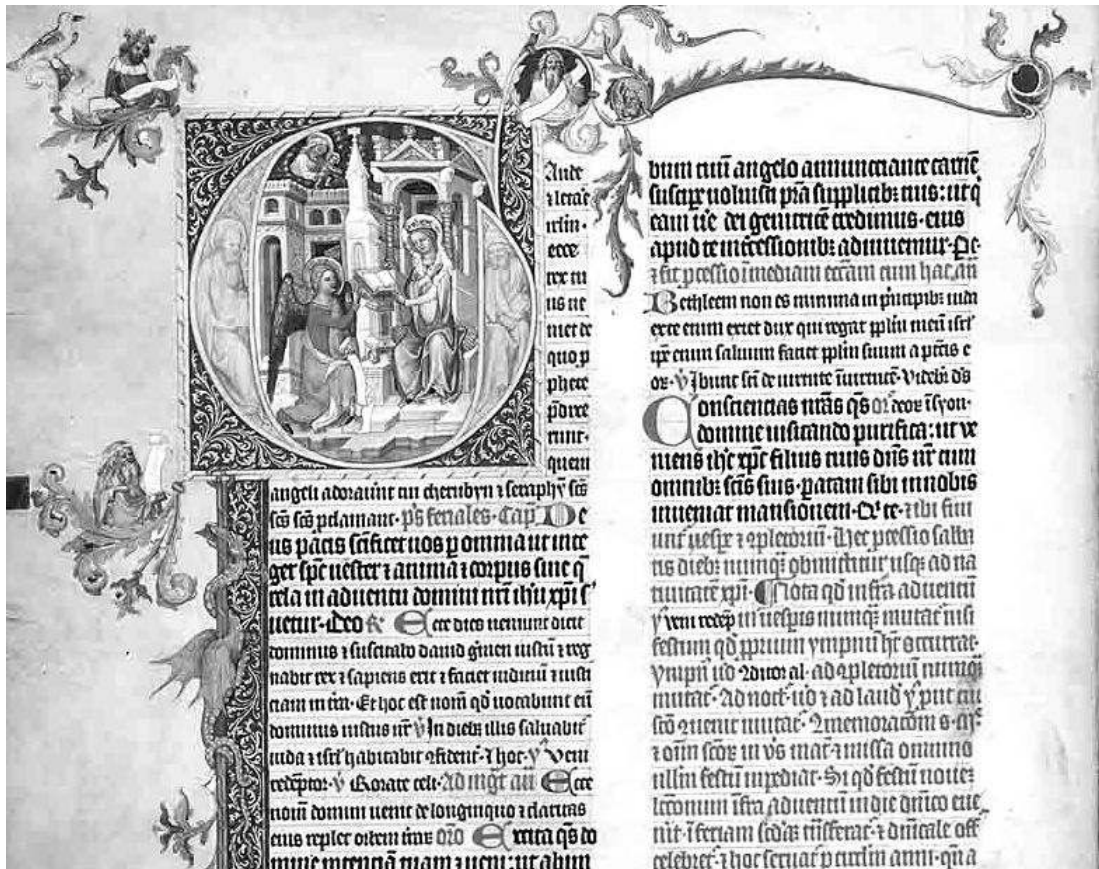 Aude
ecce
rex tu
us ue
niet de
quo p
phete
p̄dixe
runt·
quem
angeli adorauīt cui cherubyn ⁊ seraphȳ sc̄s
sc̄s sc̄s p̄clamant· p̄s feriales· Cap̄ De
us pacis sc̄ificet uos p omnia ut inte
ger sp̄c uester ⁊ anima ⁊ corpus sine q̄
rela in aduentu domini nr̄i ihū xp̄i s
uetur· Deo Ecce dies ueniunt dicit
dominus ⁊ suscitabo dauid g̓men iustū ⁊ reg
nabit rex ⁊ sapiens erit ⁊ faciet iudiciū ⁊ iusti
ciam in trā· Et hoc est nom̄ qd̄ uocabunt eū
dominus iustus nr̄ In dieb; illis saluabit̄
iuda ⁊ isrl̄ habitabit ꝯfident̄· Veni
redēptor Rorate celi· Ad mḡt an̄ Ecce
nom̄ domini uenit de longinquo ⁊ claritas
eius replet orbem Excita qs̄ do
mine potenciā tuam ⁊ ueni: ut ab hiīs
bum tuū angelo annunciante carnē
suscipe uoluisti p̄sta supplicib; tuis: ut q̄
eam ue̓ dei genitricē credimus· eius
apud te int̓cessionib; adiuuemur· Pe
⁊ fit p̄cessio ī mediam ecc̄am cum hac an̄
Bethleem non es minima in p̓ncipib; iuda
ex te enim exiet dux qui regat pplm̄ meū isrl̄
ip̄e enim saluum faciet pplm̄ suum a pcc̄tis e
or̄· Ibunt sc̄i de uirtute ī uirtutē· Videbr̄ ds̄
Consciencias nr̄as qs̄ or̄ deor̄ ī syon·
domine uisitando purifica: ut ve
niens ihc̄ xp̄c filius tuus dn̄s nr̄ cum
omnib; sc̄is suis· paratam sibi in nobis
inueniat mansionem· Q̄ te· ⁊ ibi fini
unt̄ uesp̄e ⁊ ꝯpletoriū· Hec p̄cessio sabba
tis dieb; nunq̄ obmittitur usq; ad na
tiuitatē xp̄i· Nota qd̄ infra aduentū
Veni redēp̄ in uesp̄is nunq̄ mutat̄ nisi
festum qd̄ p̄prium ympnū ht̄ occurrat·
Ympn̄ u̓o Conditor al· ad ꝯpletoriū nunq̄
mutat̄· Ad noct̄· u̓o ⁊ ad laud̄
sc̄o ꝯuenit mutat̄·
⁊ om̄i sc̄or̄ ⁊ missa omnino
nullū festū impediat· Si qd̄ festū nouē
lecconum īfra aduentū in die dn̄ico eue
nit· ī feriam scd̄am t̄nsferat̄· ⁊ dn̄icale off
celebret̄· ⁊ hoc seruat̄ p circlm̄ anni· q̄n a